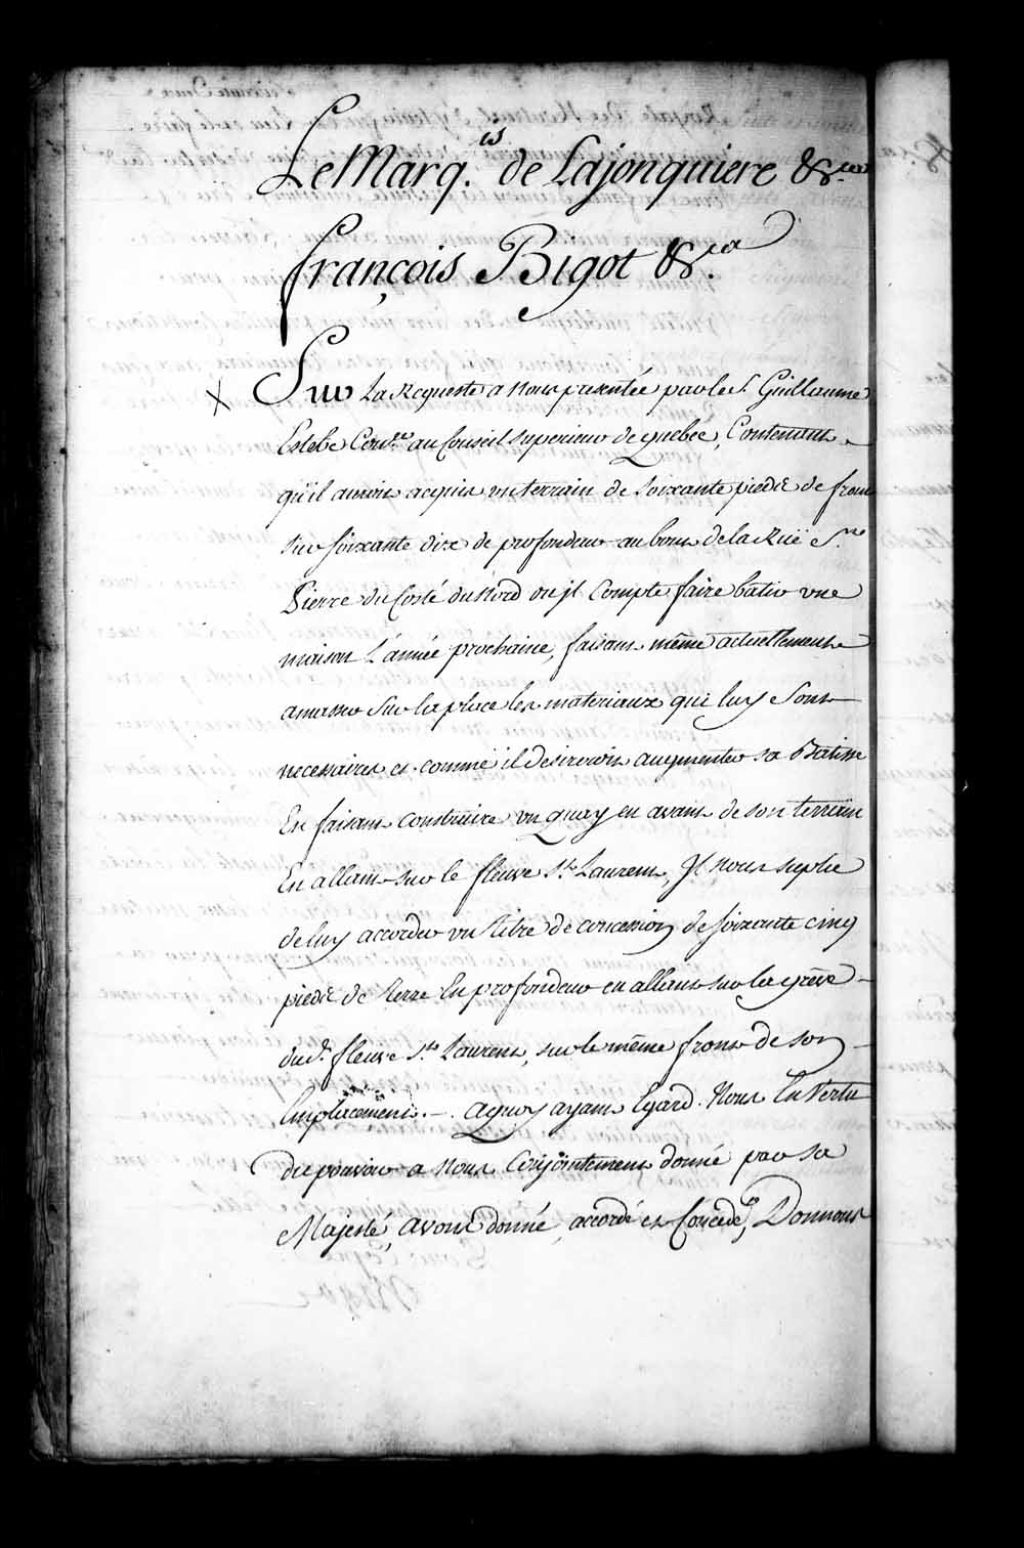 Le Marq.is de Lajonquiere &.ca
françois Bigot &.ca
X Sur La Requeste a Nous presentée par le S. Guillaume
Estebe Con.er au Conseil Superieur de quebéc, Contenant
qu'il auroit acquis un terrain de Soixante pieds de front
sur soixante dix de profondeur au bout de la Rüe S.
Pierre du Costé du Nord ou jl Compte faire bâtir une
maison L'année prochaine, faisant même actuellement
amasser Sur la place les materiaux qui luy Sont
necessaires et comme il desireroit augmenter sa Batisse
En faisant construire un Quay en avant de son terrain
En allant sur le fleuve S.t Laurent, Jl nous suplie
de luy accorder un titre de concession de soixante cinq
pieds de terre En profondeur en allant sur la grêve
dud. fleuve S.t Laurent, sur le même front de son
Emplacement. aquoy ayant Egard. Nous En Vertu
du pouvoir a Nous Conjointement donné par sa
Majesté, avons donné, accordé et Concedé, Donnons